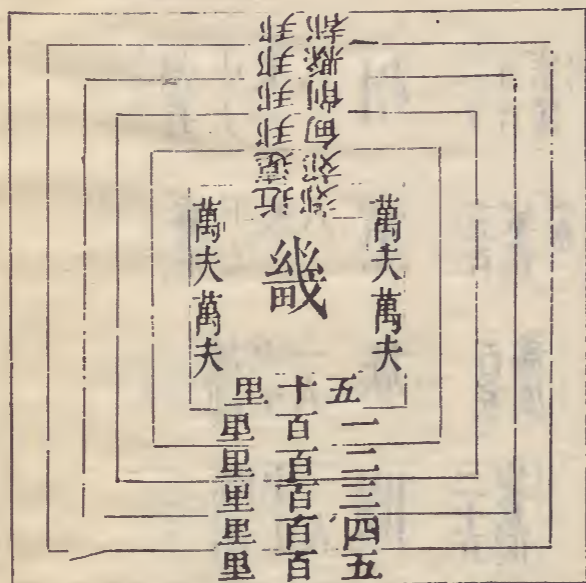 邦都
邦縣
邦削
邦甸
遠郊
近郊
萬夫萬夫
畿
萬夫萬夫
五十里
一百里
二百里
三百里
四百里
五百里